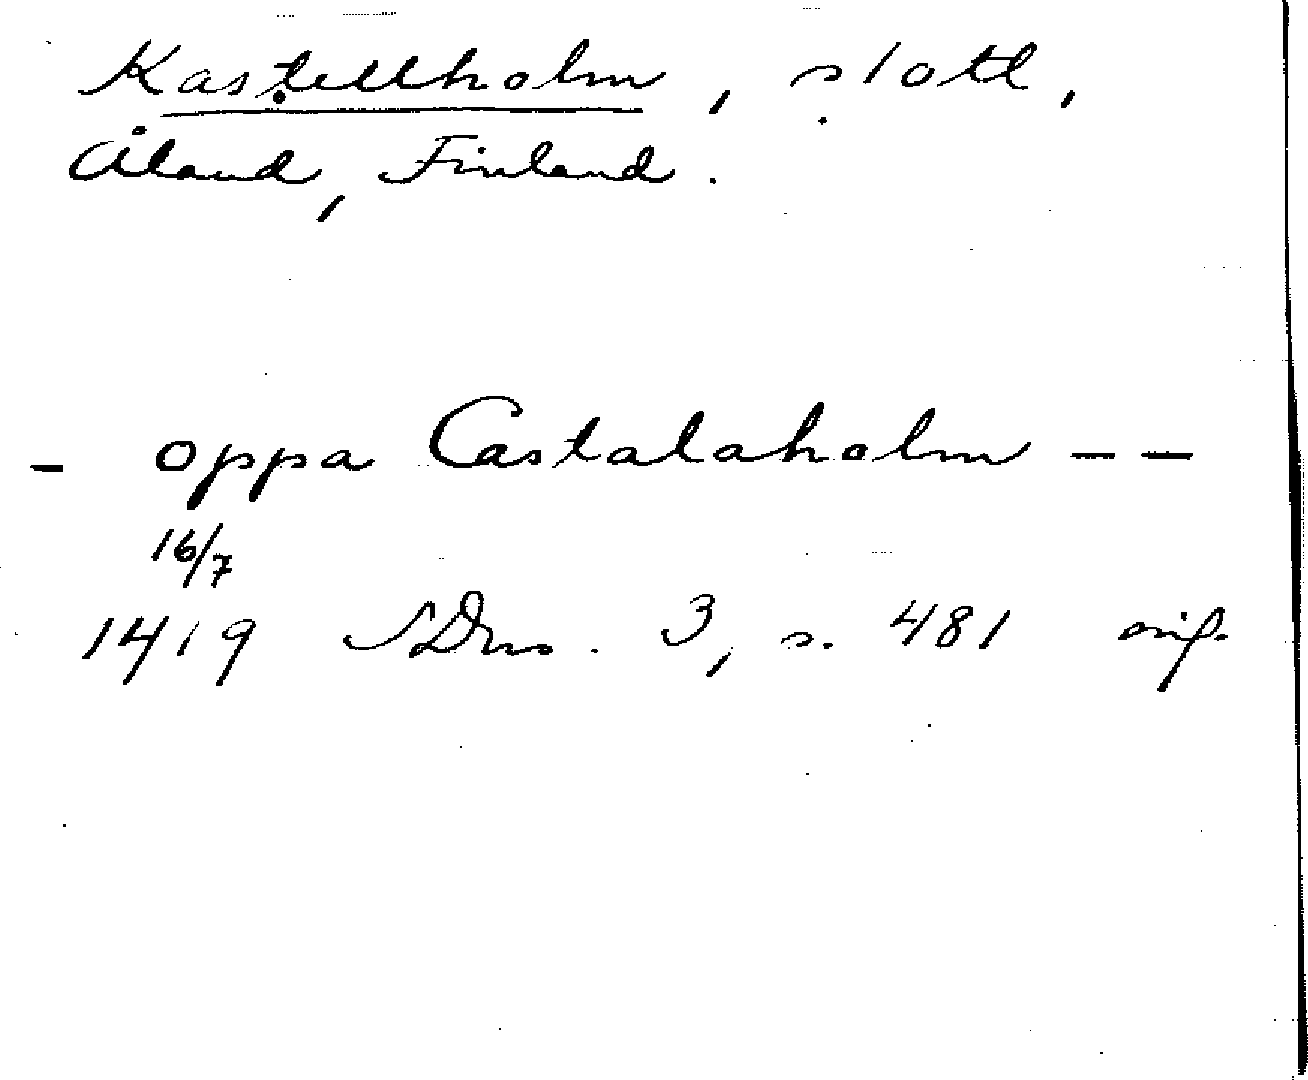 Kastellholm, slott,
Åland, Finland.
- oppa Castalaholm --
16/7
1419 SDns. 3, s. 481 orig.